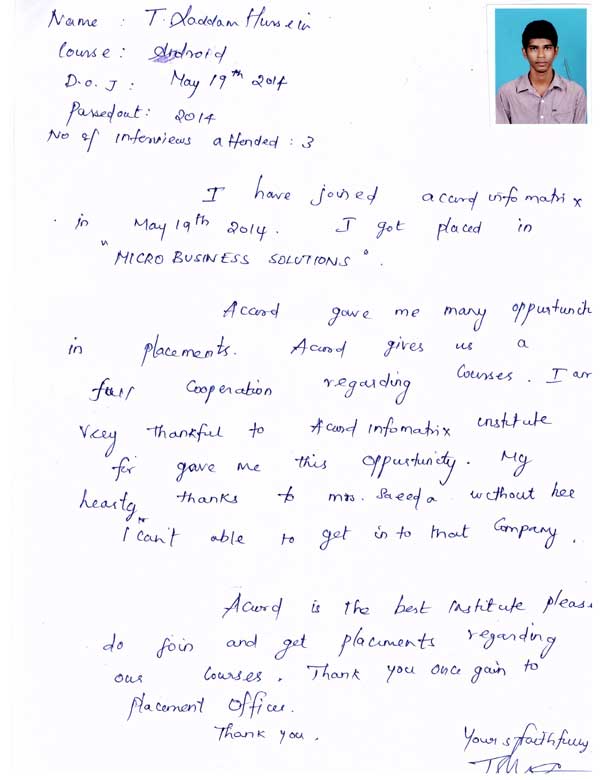 Name : T. Saddam Hussein
Course : Android
D.O.J : May 19th 2014
Passedout : 2014
No of interviews attended : 3
I have joined acord infomatrix
in May 19th 2014. I got placed in
"MICRO BUSINESS SOLUTIONS".
Acord gave me many oppurtunit
in placements. Acord gives us a
full Cooperation regarding Courses. I am
Very thankful to Acord infomatrix institute
for gave me this oppurtunity. My
hearty thanks to mrs. Saeeda without her
I can't able to get in to that Company.
Acord is the best institute please
do join and get placements regarding
our courses. Thank you once gain to
placement Officer.
Thank you.
Yours faithfully